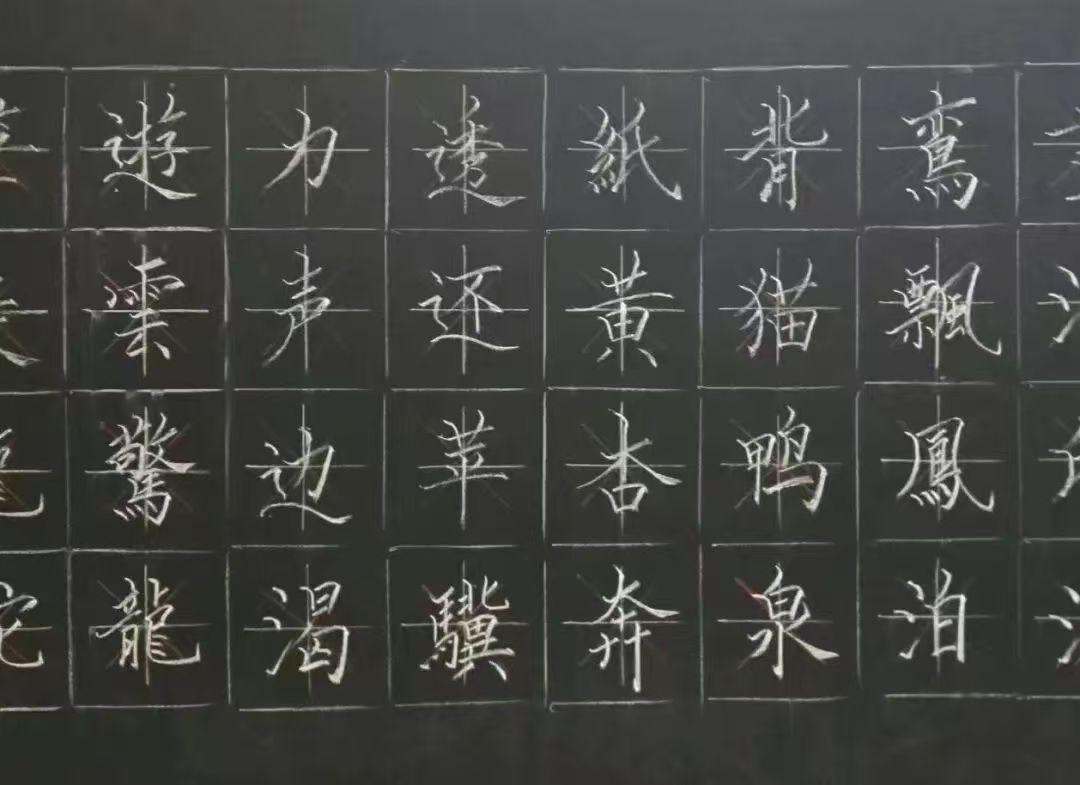 遊力透紙背鸾
雲声还黄猫飄
驚边苹杏鸭鳳
龍渴驥奔泉泊